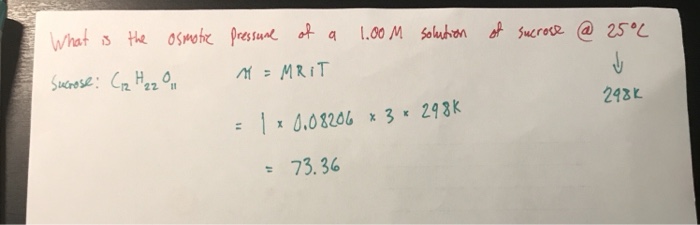 What is the osmotic pressure of a 1.00 M solution of sucrose @ 25°C
↓
298K
Sucrose: C12 H22 O11
π = MRiT
= 1 x 0.08206 x 3 x 298K
= 73.36